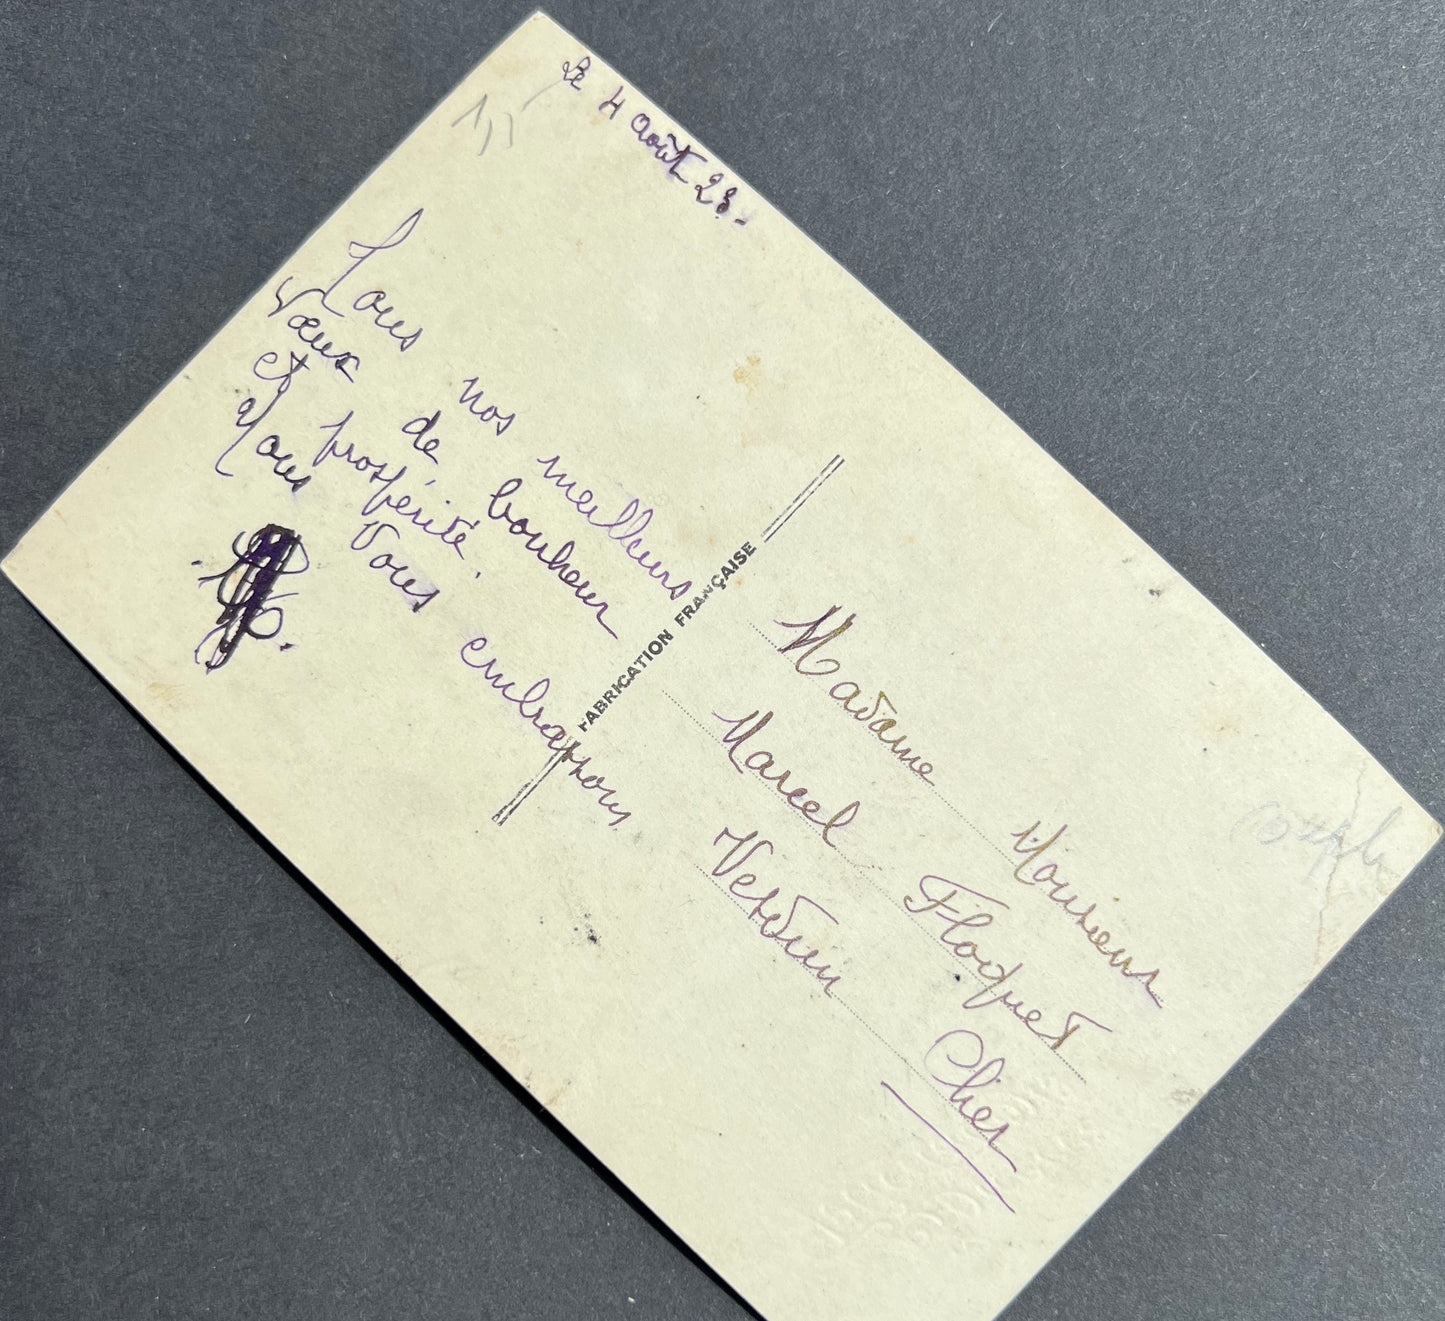 Le 4 Août 23.-
Tous nos meilleurs
Vœux de bonheur
et prospérité.
Nous Vous embrassons
FABRICATION FRANÇAISE
Madame Monsieur
Marcel Floquet
Verdun Cher